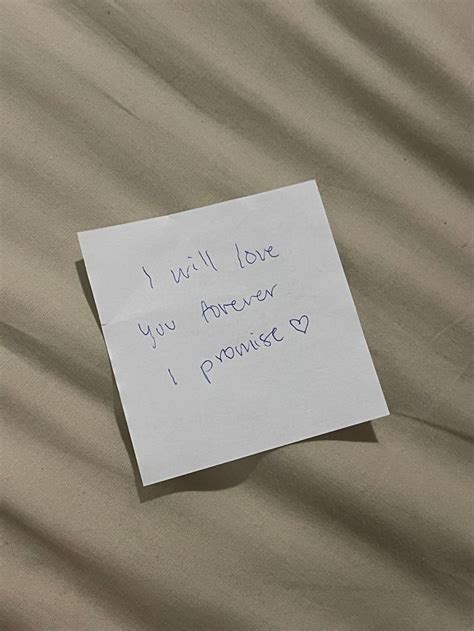 I will love
you forever
I promise ♡